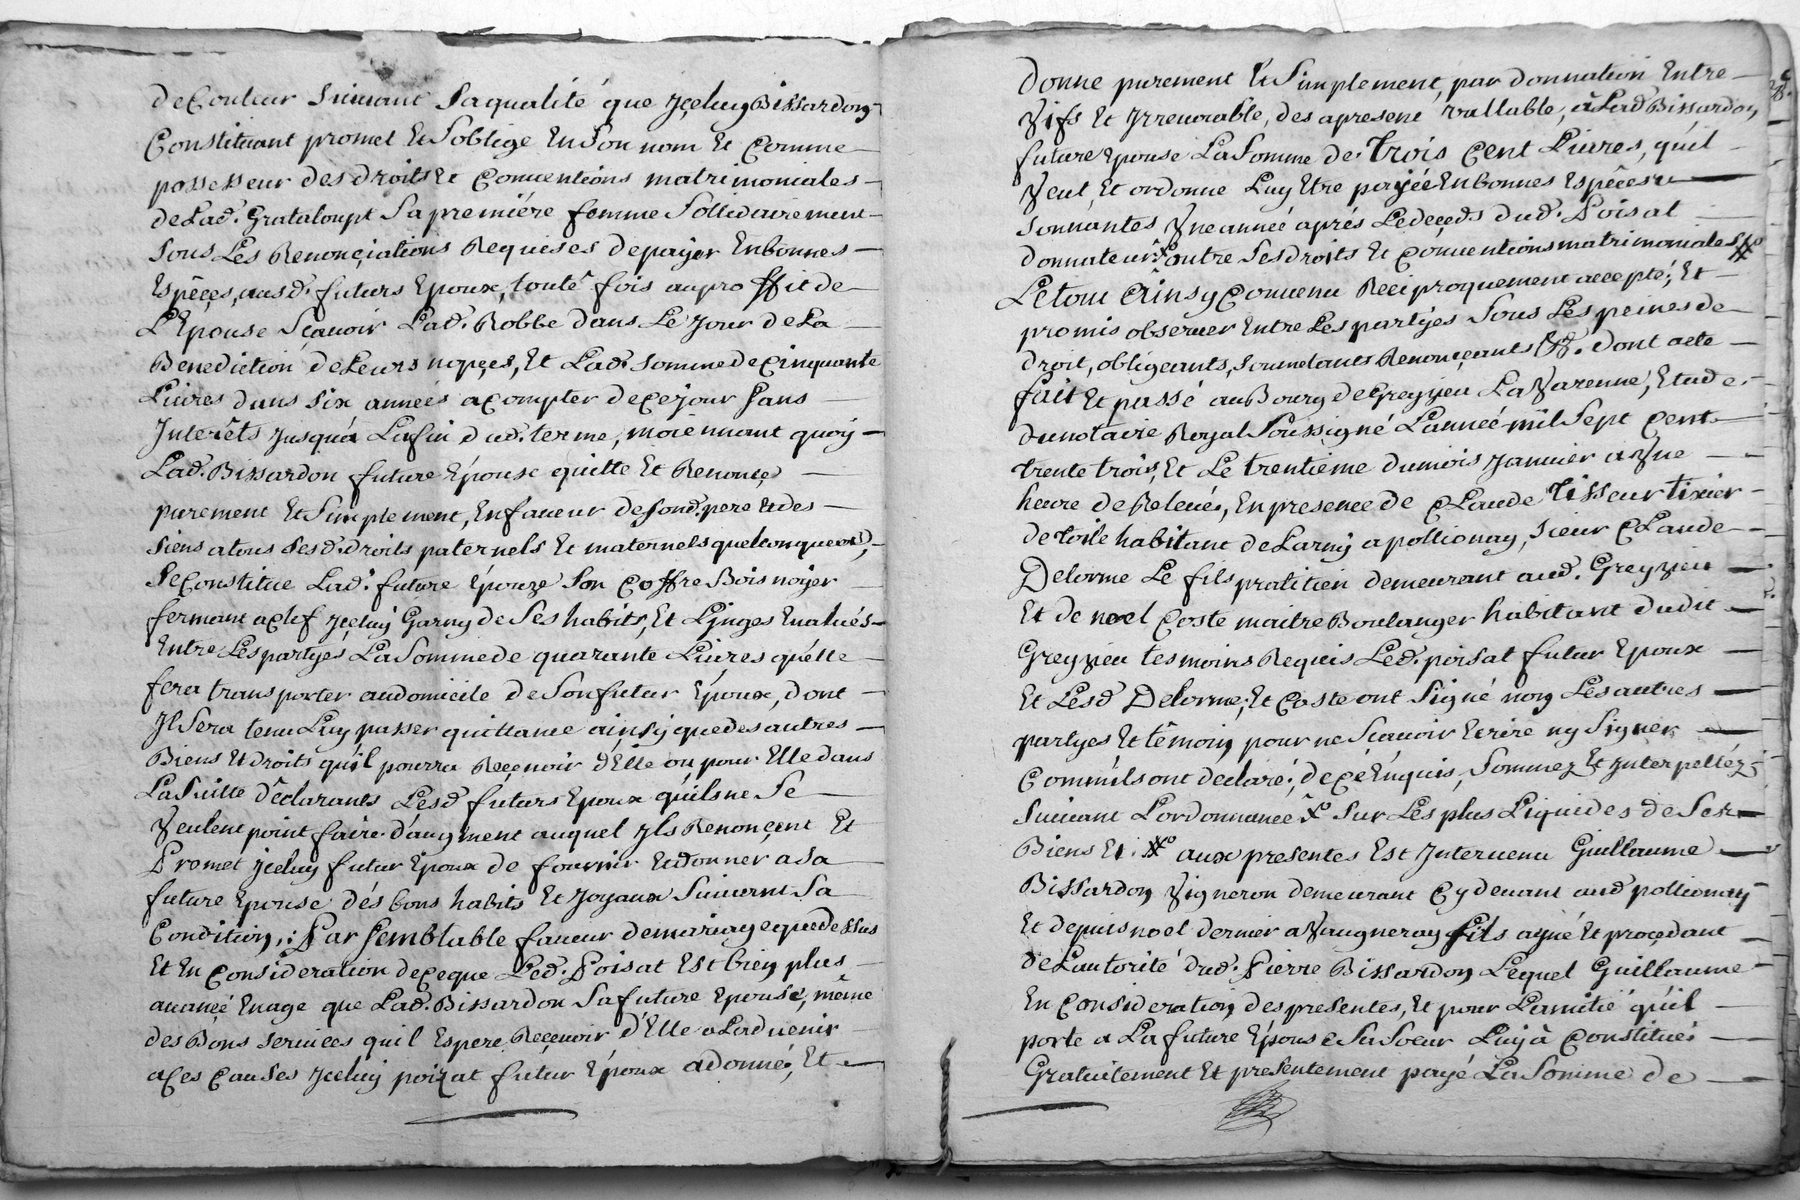 de Couleur suivant sa qualité que Jçeluy Bissardon
Constituant promet Et Soblige En Son nom Et Comme
possesseur des droits Et Conventions matrimoniales
de Lad. Grataloupt Sa premiére femme Sollidairement
sous Les Renonçiations Requises de payer En bonnes
Espêçes, ausd. futurs Epoux, toute fois au proffit de
L'Epouse Sçavoir Lad. Robbe dans Le Jour de La
Benediction de Leurs nopçes, Et Lad. somme de Cinquante
Livres dans six années a Compter de Ce jour sans
Jnterêts Jusquá La fin dud. terme, moiennant quoy
Lad. Bissardon future Epouse quitte Et Renonçe
purement Et Simplement, En faveur de Sond. pere Et des
siens a tous Sesd. droits paternels Et maternels quelconques,
Se Constitue Lad. future Epouze Son Coffre Bois noyer
fermant a Clef Jçeluy Garny de Ses habits, Et Linges Evalués
Entre Les partyes La Somme de quarante Livres qu'elle
fera transporter au domicile de Son futur Epoux, dont
Jl Sera tenu Luy passer quittance ainsy que des autres
Biens Et droits qu'il pourra Reçevoir d'Elle ou pour Elle dans
La Suitte déclarants Lesd. futurs Epoux qu'ils ne Se
veulent point faire d'augment auquel Jls Renonçent Et
Promet Jçeluy futur Epoux de fournir Et donner a Sa
future Epouse dés bons habits Et Joyaux Suivant Sa
Condition, : Par Semblable faveur de mariage que dessus
Et En Consideration de Ce que Led. Poisat Est bien plus
avançé En age que Lad. Bissardon Sa future Epouse, même
des Bons services qu'il Espere Reçevoir d'Elle a Ladvenir
a Ces Causes Jçeluy poizat futur Epoux a donné, Et
donne purement Et Simplement, par donnation Entre
vifs Et Jrrevocable, des apresent vallable, a Lad. Bissardon,
future Epouse La Somme de Trois Cent Livres, qu'il
veut, Et ordonne Luy Etre payée En bonnes Espêces
sonnantes Une année aprés Le deçeds dud. Poisat
donnateur outre Ses droits Et Conventions matrimoniales
Le tout Ainsy Convenu Reciproquement accepté, Et
promis observer Entre Les partyes Sous Les peines de
droit, obligeants, soumetants Renonçeants &. dont acte
fait Et passé au Bourg de Greyzieu La Varenne, Etude
du notaire Royal Soussigné L'année mil Sept Cent
trente trois, Et Le trentieme du mois Janvier a Une
heure de Relevée, En presence de Claude Tisseur tixier
de toile habitant de Larny a pollionay, sieur Claude
Delorme Le fils pratitien demeurant aud. Greyzieu
Et de noel Coste maitre Boulanger habitant dudit
Greyzieu tesmoins Requis Led. poisat futur Epoux
Et Lesd. Delorme, Et Coste ont Signé non Les autres
partyes Et têmoin pour ne Scavoir Ecrire ny Signer
Comm'ils ont declaré, de Ce Enquis, Sommez Et Jnterpellez
Suivant L'ordonnance Sur Les plus Liquides de Ses
Biens Et : aux presentes Est Jntervenu Guillaume
Bissardon Vigneron demeurant Cy devant aud. pollionay
Et depuis noel dernier a Vaugneray fils ayné Et proçedant
de L'autorité dud. Pierre Bissardon Lequel Guillaume
En Consideration des presentes, Et pour Lamitié qu'il
porte a La future Epouse Sa Soeur Luy à Constitué
Gratuitement Et presentement payé La Somme de